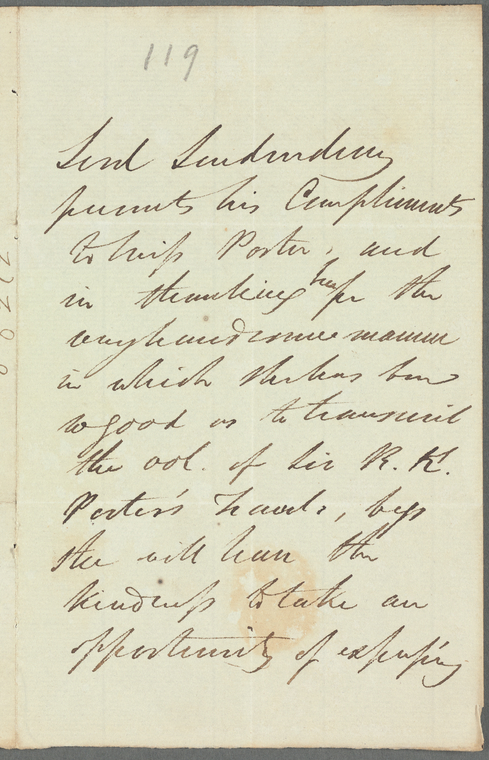 119
Lord Londonderry
presents his Compliments
to Miss Porter, and
in thanking her for the
very handsome manner
in which she has been
so good as to transmit
the vol. of Sir R. K.
Porter's Travels, begs
she will have the
kindness to take an
opportunity of expressing